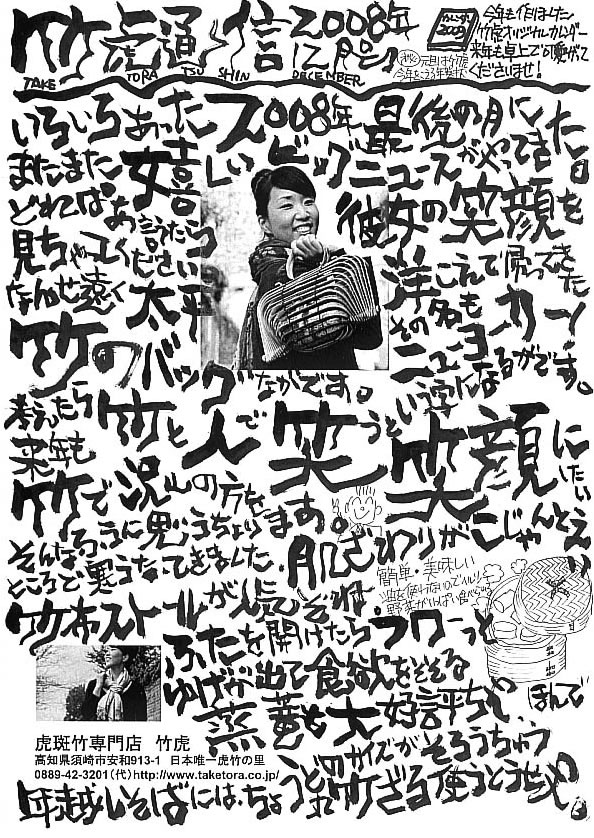 竹虎通信 2008年12月号
TAKE TORA TSU SHIN DECEMBER
カレンダー 2009
今年も作りました
竹虎オリジナルカレンダー
来年も卓上で可愛がって
くださいませ!
いろいろあった2008年最後の月に
またまた嬉しいビッグニュースがやってきた。
どればあ言うたら彼女の笑顔を
見ちゃってください
なんせ遠く太平洋こえて帰ってきた
竹のバッグ その名もニューヨーカー!
ながです。
考えたら竹と人で笑うという字になるがです。
来年も竹で沢山の方を笑顔にしたい
そんなふうに思うちょります。
ところで寒うなってきました 肌ざわりがこじゃんとえい
竹布ストールが人気ぞね
簡単・美味しい
油を使わないでヘルシー
野菜がいっぱい食べられる
ふたを開けたらフワーっと
ゆげが出て食欲をそそる
蒸篭も大好評ちや。ほんで
年越しそばには、ちょうど
のサイズがそろうちゅう
竹ざる使うとうせよ。
虎斑竹専門店 竹虎
高知県須崎市安和913-1 日本唯一虎竹の里
0889-42-3201(代) http://www.taketora.co.jp/